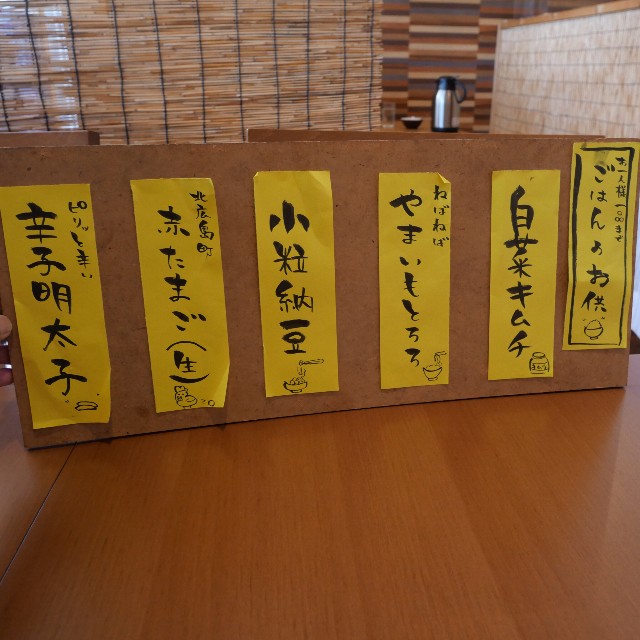 お一人様一〇〇まで
ごはんのお供
白菜キムチ
ねばねば
やまいもとろろ
小粒納豆
北広島町
赤たまご(生)
ピリッと辛い
辛子明太子